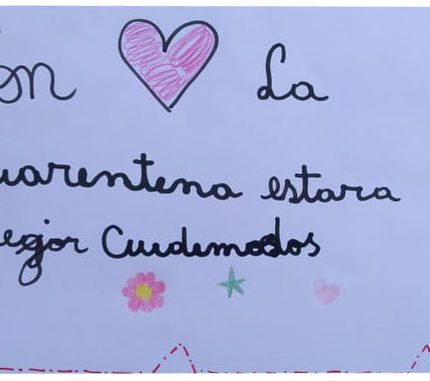 on La
uarentena estara
ejor